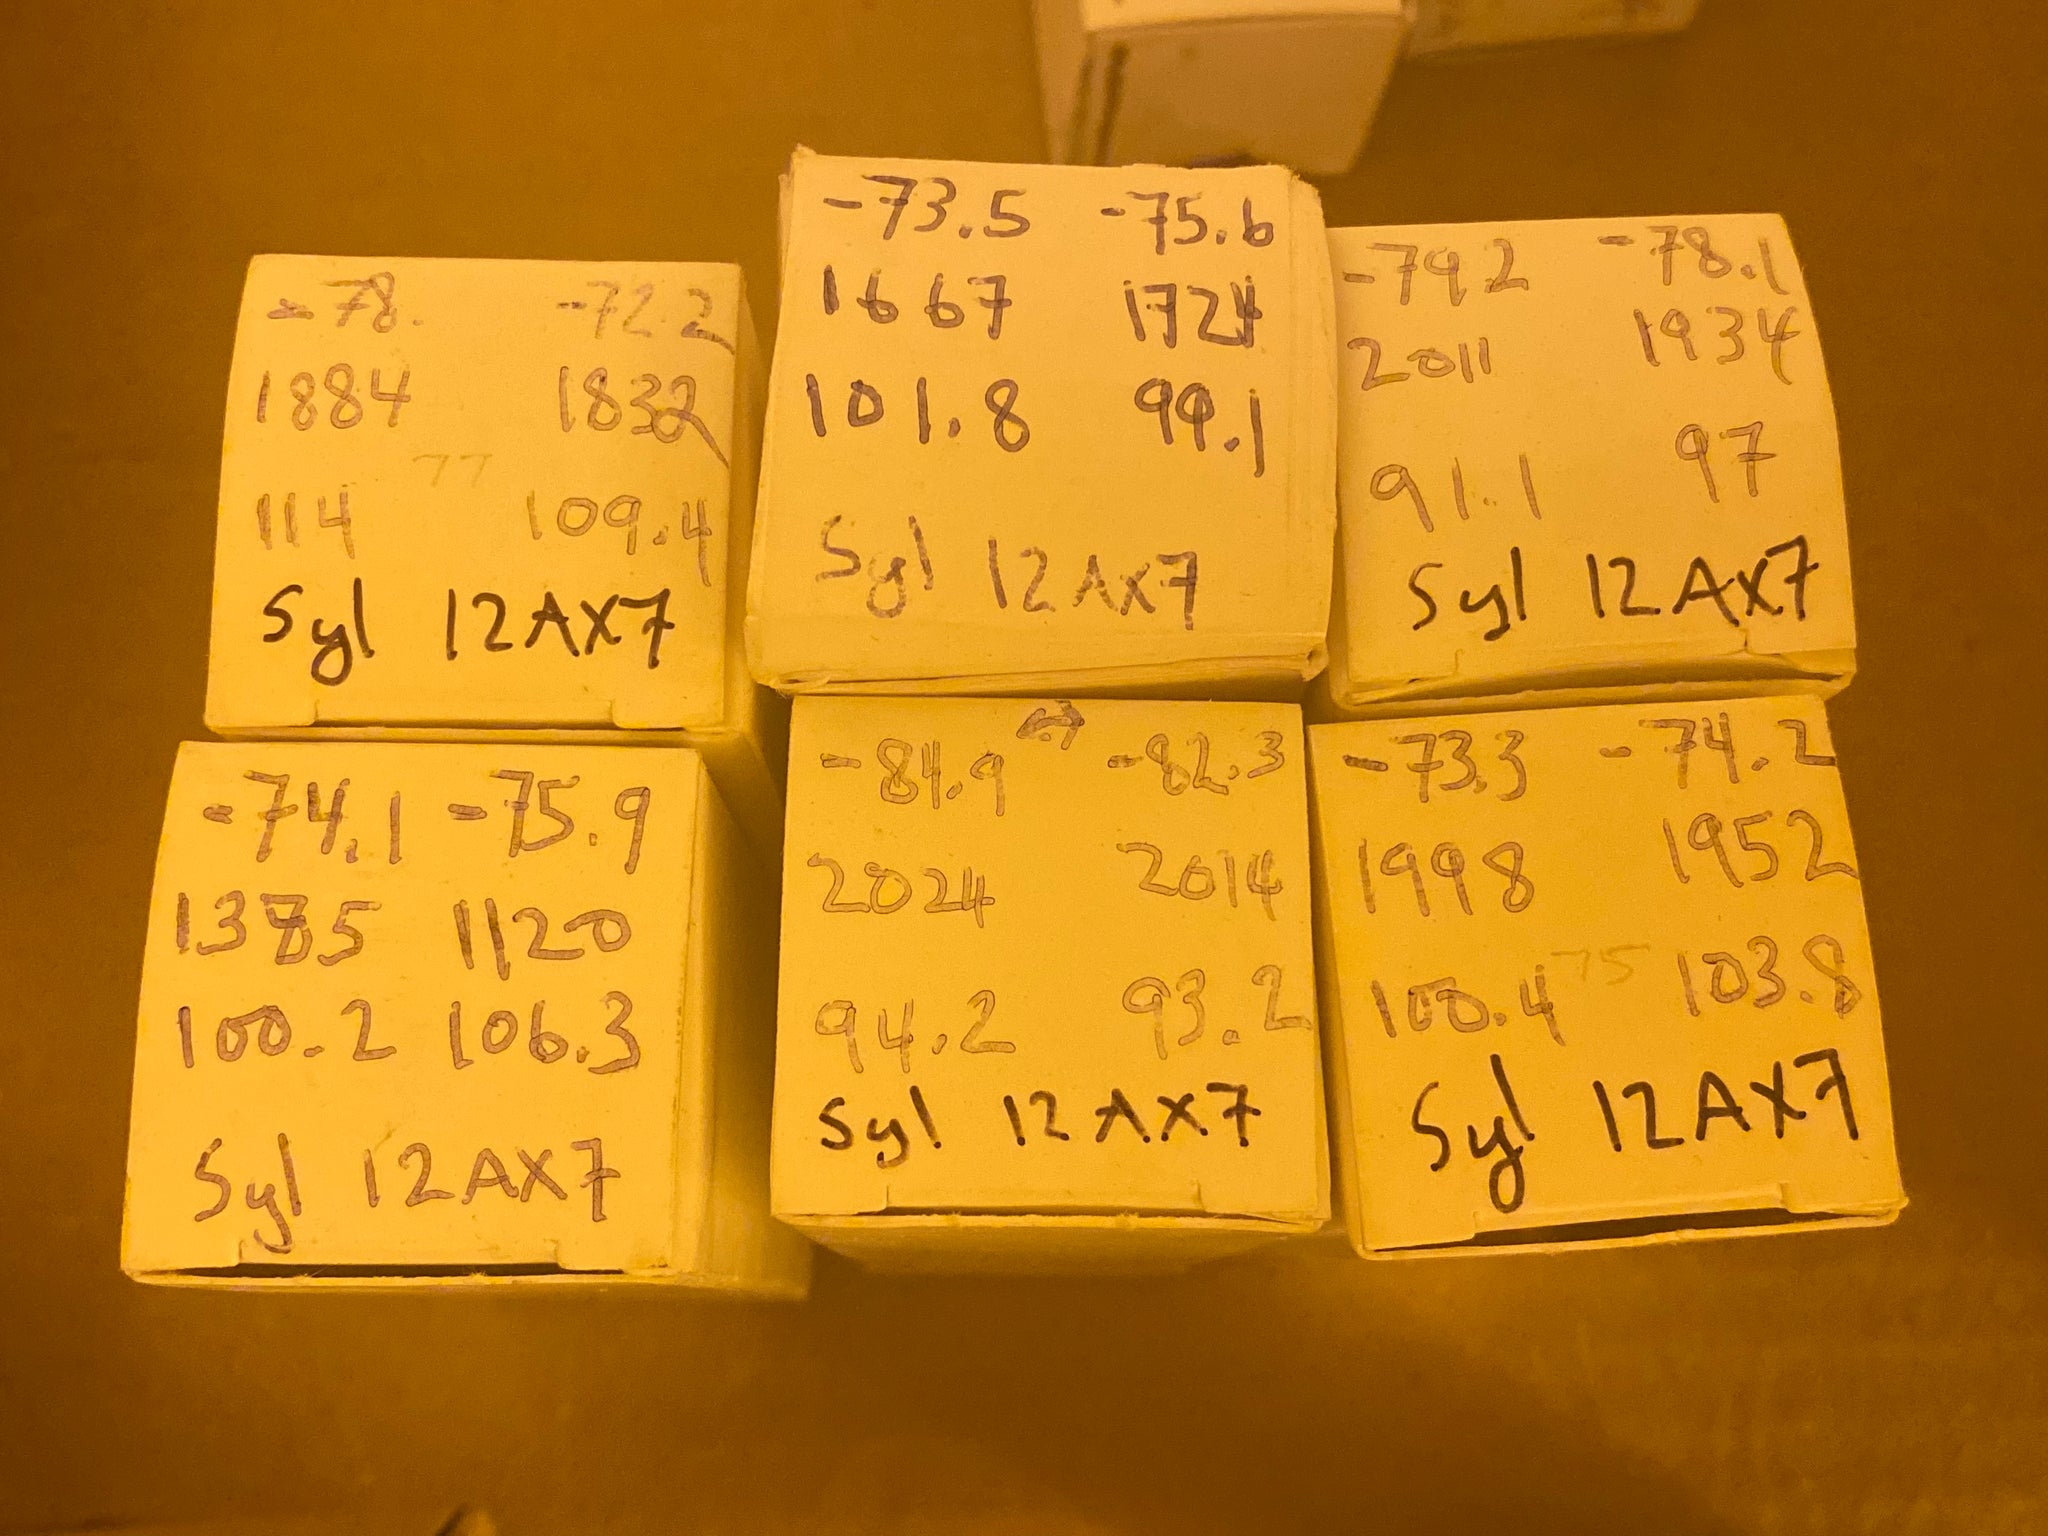 -78. -72.2
1884 1832
77
114 109.4
Syl 12AX7
-73.5 -75.6
1667 1724
101.8 99.1
Syl 12AX7
-79.2 -78.1
2011 1934
91.1 97
Syl 12AX7
-74.1 -75.9
1385 1120
100.2 106.3
Syl 12AX7
-84.9 ↔ -82.3
2024 2014
94.2 93.2
Syl 12AX7
-73.3 -74.2
1998 1952
100.4 75 103.8
Syl 12AX7